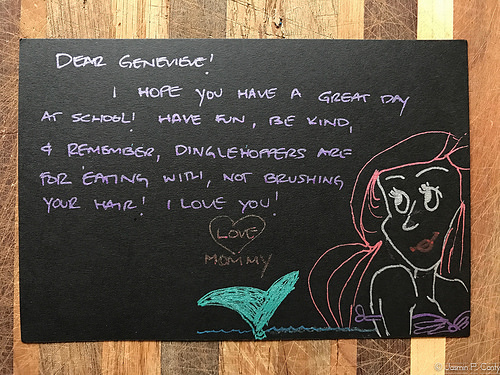 DEAR GENEVIEVE!
I HOPE YOU HAVE A GREAT DAY
AT SCHOOL! HAVE FUN, BE KIND,
& REMEMBER, DINGLEHOPPERS ARE
FOR EATING WITH, NOT BRUSHING
YOUR HAIR! I LOVE YOU!
LOVE
MOMMY
© Jasmin F. Conty